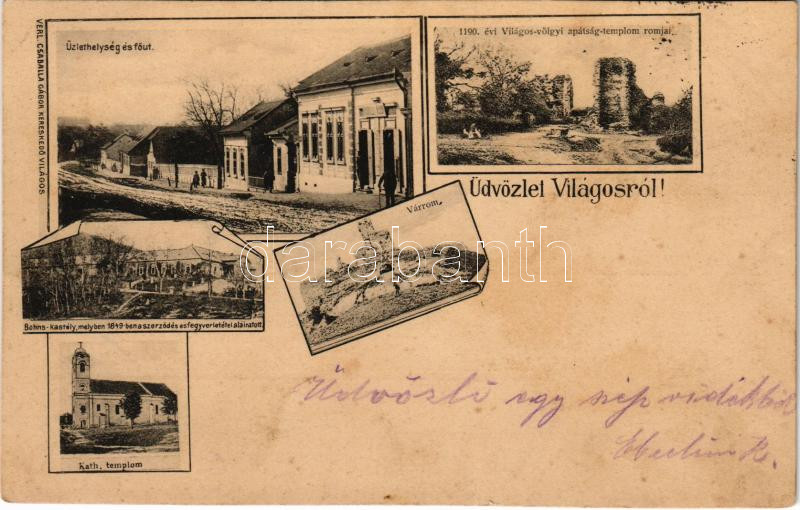 VERL. CSABALLA GÁBOR KERESKEDŐ VILÁGOS
Üzlethelység és főut.
1190. évi Világos-völgyi apátság-templom romjai
Üdvözlet Világosról!
Várrom.
darabanth
Bohns-kastély, melyben 1849-ben a szerződés és fegyverletétel aláiratott.
Kath. templom
Üdvözli egy szép vidékből